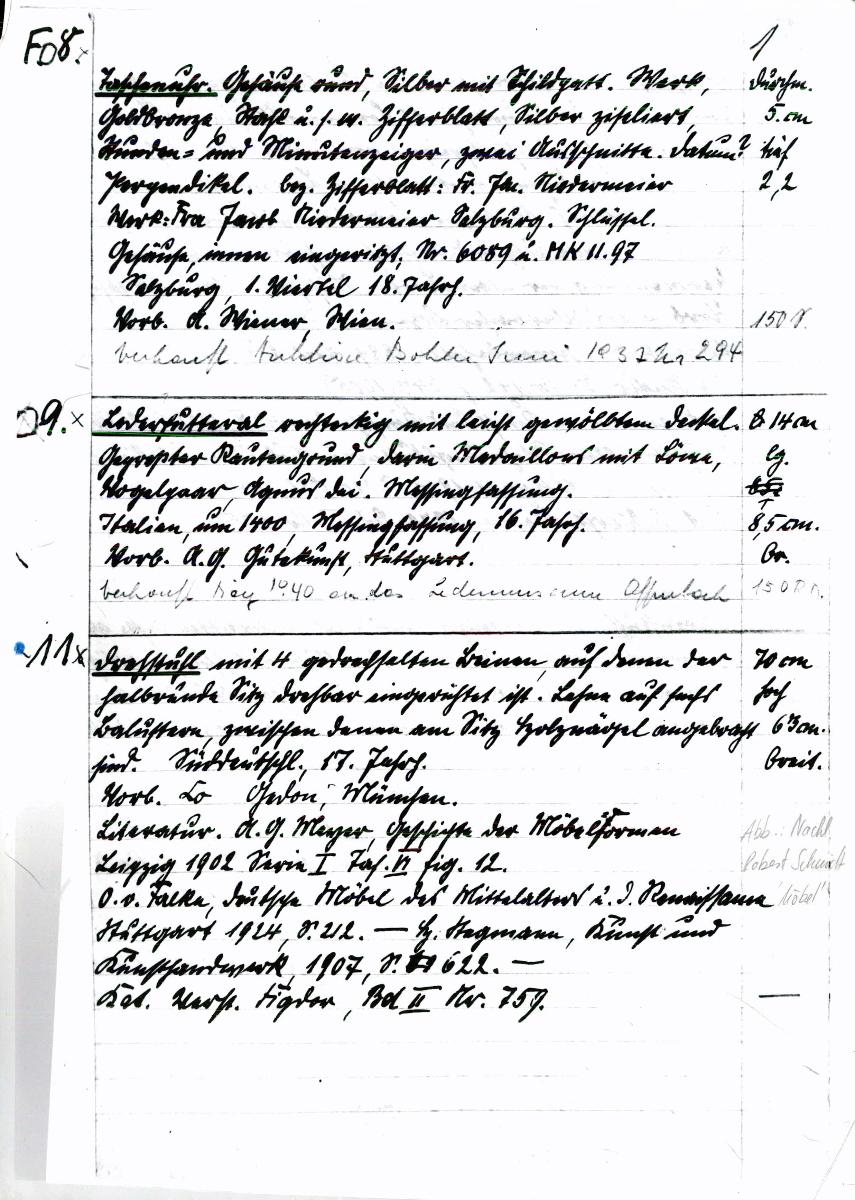 Fo 8. x
1
Taschenuhr. Gehäuse rund, Silber mit Schildpatt. Werk, Durchm.
Goldbronze, Stahl u.s.w. Zifferblatt, Silber ziseliert, 5. cm
Stunden- und Minutenzeiger, zwei Ausschnitte. Datum? tief
Perpendikel. bez. Zifferblatt: Fr. Jac. Niedermeier 2,2
Werk: Fra Jacob Niedermeier Salzburg. Schlüssel.
Gehäuse, innen eingeritzt: Nr. 6089 u. MK 11.97
Salzburg, 1. Viertel 18. Jahrh.
Vorb. A. Wiener, Wien. 150
verkauft Auktion Böhler Juni 1937 Nr 294
9. x Lederfutteral rechteckig mit leicht gewölbtem Deckel. 14 cm
Gepreßter Rautengrund, darin Medaillons mit Löwe, lg.
Vogelpaar, Agnus dei. Messingfassung.
Italien, um 1400, Messingfassung, 16. Jahrh. 8,5 cm.
Vorb. A.G. Gutekunst, Stuttgart. br.
verkauft 1940 an das Ledermuseum Offenbach 150
11 x Drehstuhl mit 4 gedrechselten Beinen, auf denen der 70 cm
halbrunde Sitz drehbar eingerichtet ist. Lehne auf sechs hoch
Balustern, zwischen denen am Sitz Holznägel angebracht 63 cm.
sind. Süddeutschl., 17. Jahrh. breit.
Vorb. Lo Gedon, München.
Literatur. A.G. Meyer, Geschichte der Möbelformen
Abb.: Nachl.
Leipzig 1902 Serie I Taf. VI fig. 12.
Robert Schmidt
O. v. Falke, Deutsche Möbel des Mittelalters u. d. Renaissance
"Möbel"
Stuttgart 1924, S. 212. — H. Stegmann, Kunst und
Kunsthandwerk, 1907, S. 622. —
Kat. Verst. Figdor, Bd II Nr. 759. —